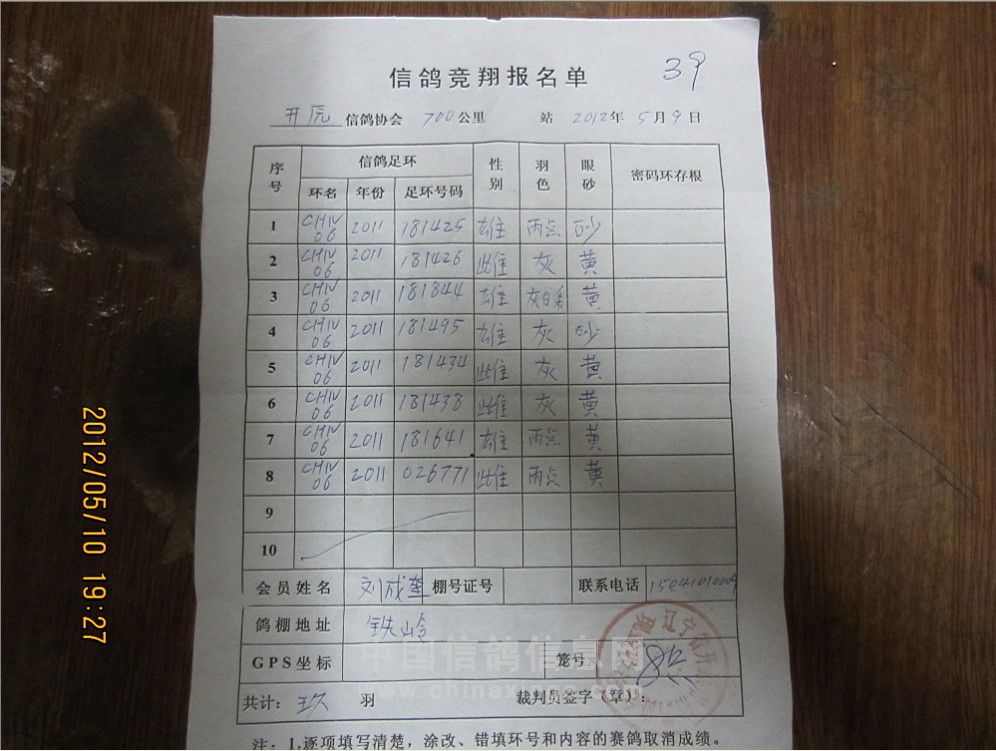 信鸽竞翔报名单 39
开原 信鸽协会 700公里 站 2012年 5月9日
序号 信鸽足环 性别 羽色 眼砂 密码环存根
环名 年份 足环号码
1 CHN 06 2011 181425 雄 雨点 砂
2 CHN 06 2011 181426 雌 灰 黄
3 CHN 06 2011 181844 雄 灰白条 黄
4 CHN 06 2011 181495 雄 灰 砂
5 CHN 06 2011 181434 雌 灰 黄
6 CHN 06 2011 181438 雌 灰 黄
7 CHN 06 2011 181641 雄 雨点 黄
8 CHN 06 2011 026771 雌 雨点 黄
9
10
会员姓名 刘成 棚号证号 联系电话
鸽棚地址 铁岭
GPS坐标 笼号
共计: 羽 裁判员签字(章):
注:1.逐项填写清楚,涂改、错填环号和内容的赛鸽取消成绩。
中国信鸽信息网
2012/05/10 19:27